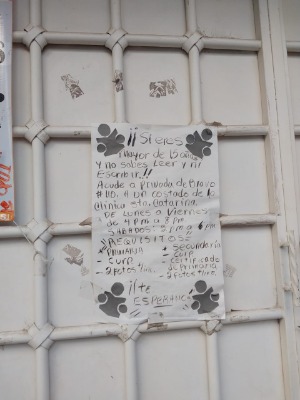 ¡¡ SI ERES
Mayor de 15 años
Y no sabes Leer y ni
Escribir!!
Acude a Privada de Bravo
#110. A un costado de la
Clínica Sta. Catarina.
DE LUNES a Viernes
de 4 PM a 8 PM
SABADOS: 2 PM a 6 PM
REQUISITOS
PRIMARIA
- CURP.
- 2 Fotos
* Secundaria
- CURP
- Certificado
de Primaria
- 2 fotos
¡Te
ESPERAMOS